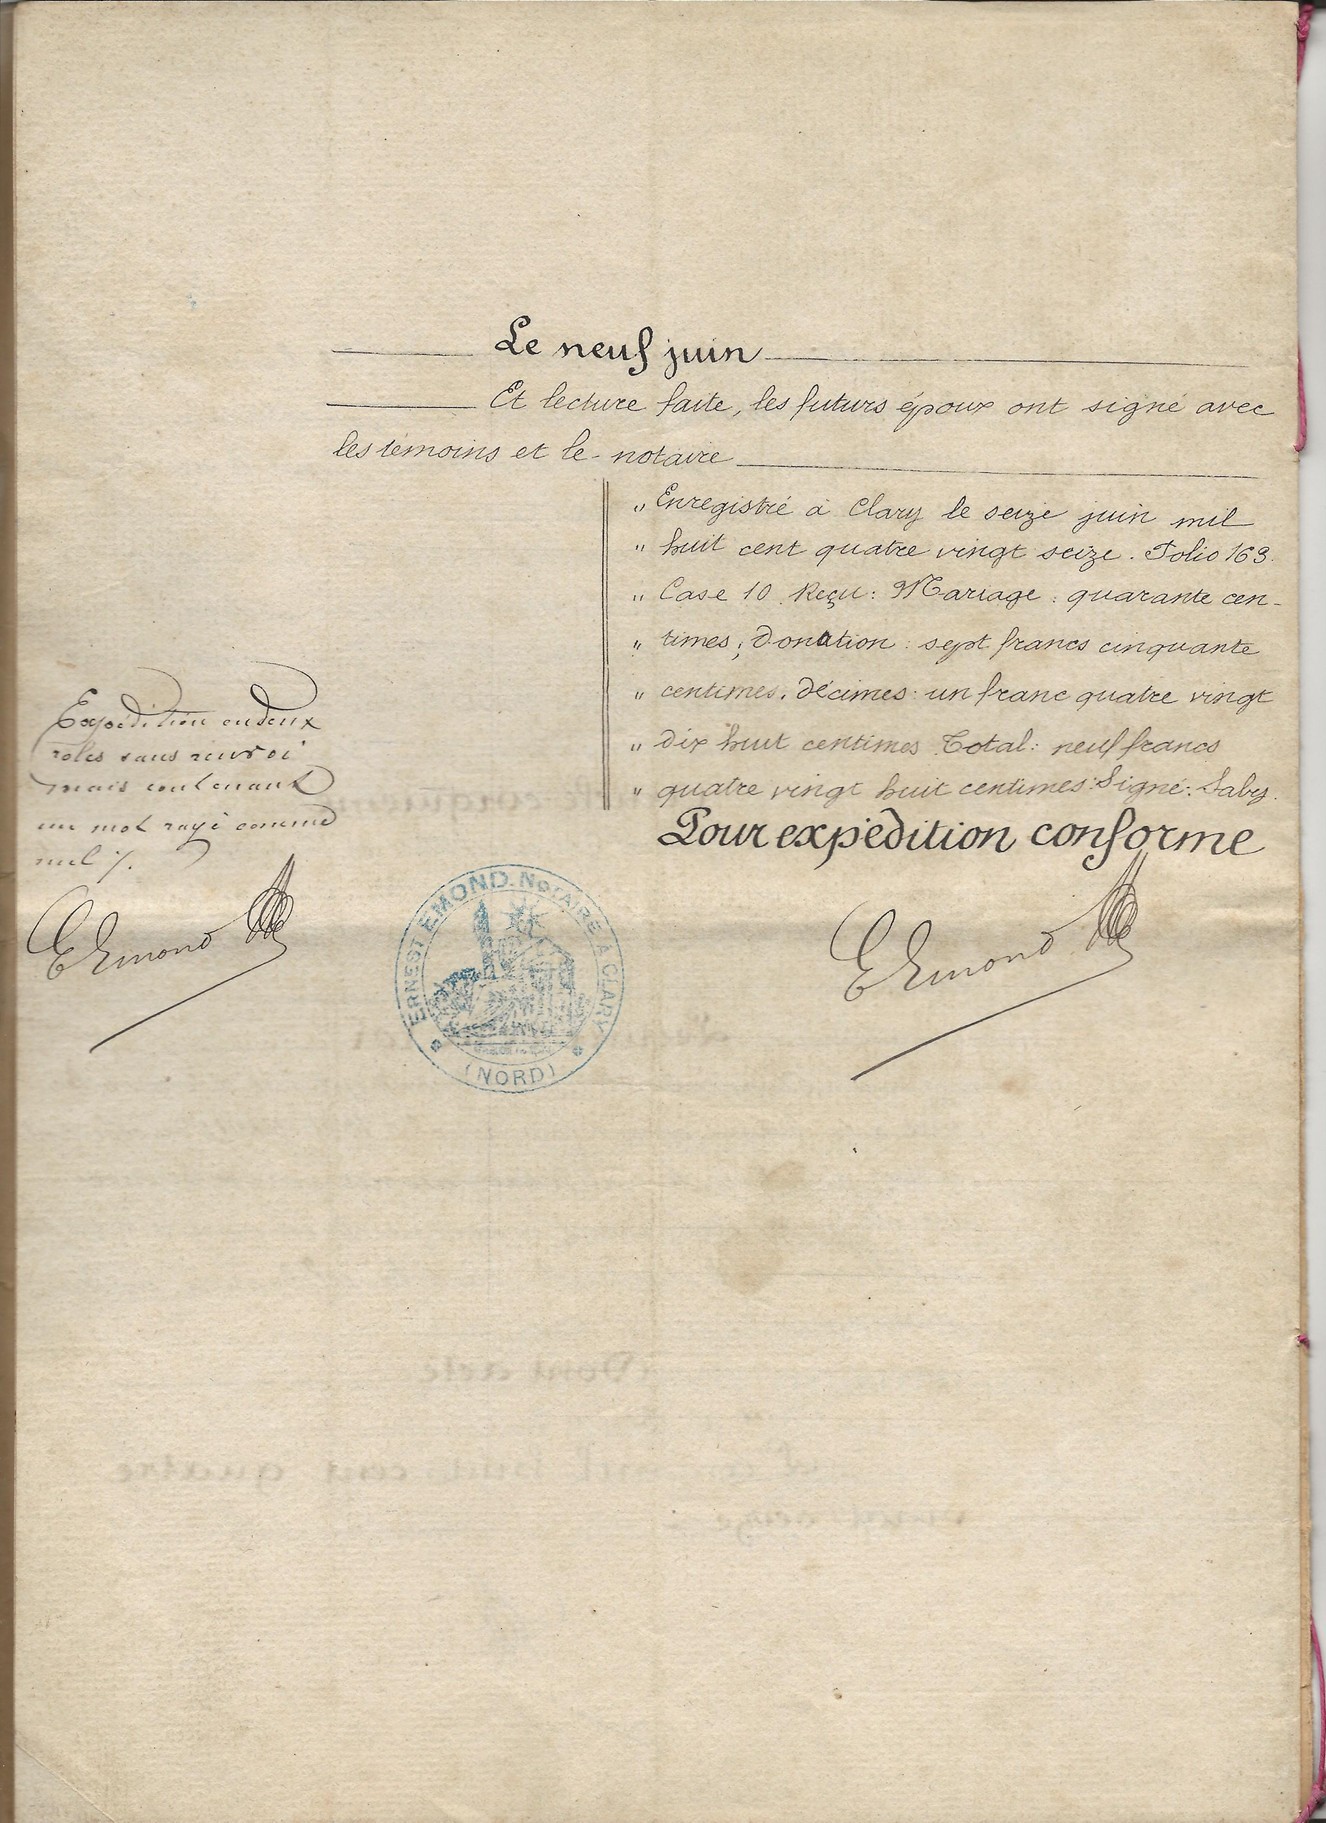 Le neuf juin
Et lecture faite, les futurs époux ont signé avec
les témoins et le notaire
" Enregistré à Clary le seize juin mil
" huit cent quatre vingt seize. Folio 163.
" Case 10 Reçu: Mariage: quarante cen-
" times; donation: sept francs cinquante
" centimes. décimes: un franc quatre vingt
" dix huit centimes Total: neuf francs
" quatre vingt huit centimes. Signé: Saby.
Pour expédition conforme
Expédition en deux
roles sans renvoi
mais contenant
un mot rayé comme
nul /.
E Emond
ERNEST EMOND. NOTAIRE À CLARY
(NORD)
E Emond